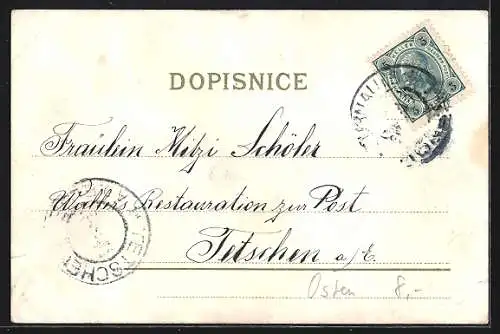 DOPISNICE
Fräulein Mitzi Schöler
Walters Restauration zur Post
Tetschen a/E.
TETSCHEN
Osten 8,-